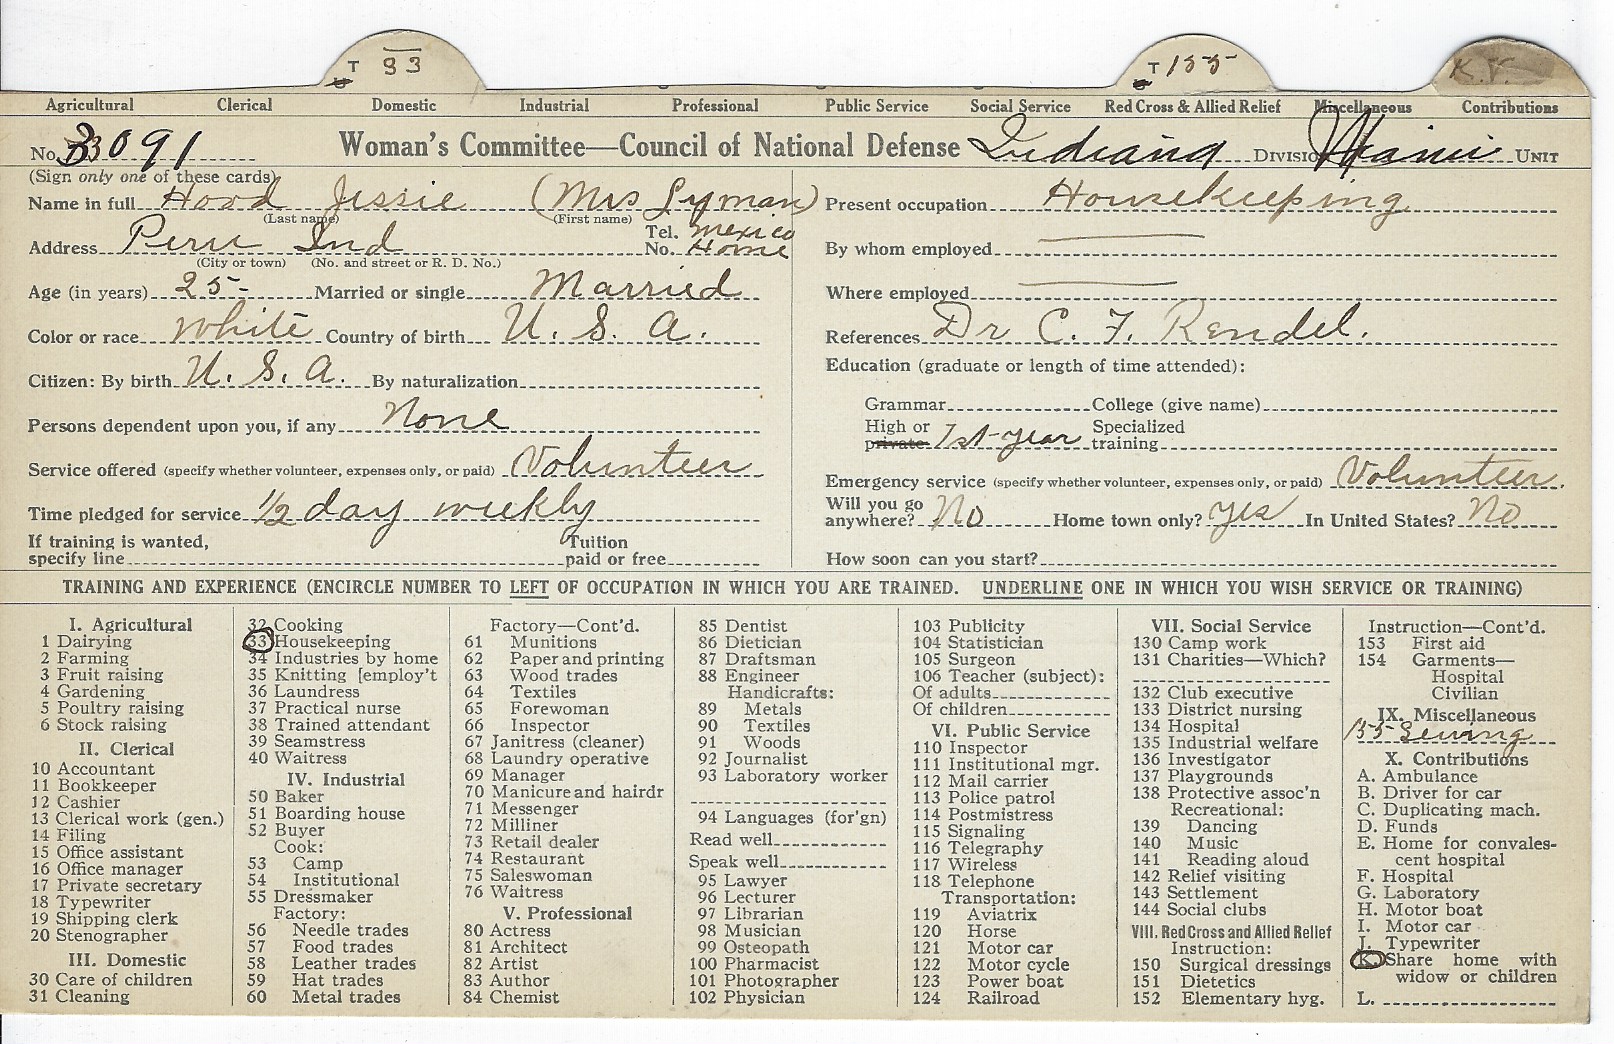 T 33
T 155
K.
Agricultural Clerical Domestic Industrial Professional Public Service Social Service Red Cross & Allied Relief Miscellaneous Contributions
No. 33091 Woman's Committee—Council of National Defense Indiana Division Miami Unit
(Sign only one of these cards)
Name in full Hood Jessie (Mrs Lyman)
(Last name) (First name)
Address Peru Ind Tel. No. Mexico Home
(City or town) (No. and street or R. D. No.)
Age (in years) 25 Married or single Married
Color or race White Country of birth U. S. A.
Citizen: By birth U. S. A. By naturalization
Persons dependent upon you, if any None
Service offered (specify whether volunteer, expenses only, or paid) Volunteer
Time pledged for service 1/2 day weekly
If training is wanted, specify line Tuition paid or free
Present occupation Housekeeping
By whom employed
Where employed
References Dr C. F. Rendel.
Education (graduate or length of time attended):
Grammar College (give name)
High or private 1st year Specialized training
Emergency service (specify whether volunteer, expenses only, or paid) Volunteer.
Will you go anywhere? No Home town only? Yes In United States? No
How soon can you start?
TRAINING AND EXPERIENCE (ENCIRCLE NUMBER TO LEFT OF OCCUPATION IN WHICH YOU ARE TRAINED. UNDERLINE ONE IN WHICH YOU WISH SERVICE OR TRAINING)
I. Agricultural
1 Dairying
2 Farming
3 Fruit raising
4 Gardening
5 Poultry raising
6 Stock raising
II. Clerical
10 Accountant
11 Bookkeeper
12 Cashier
13 Clerical work (gen.)
14 Filing
15 Office assistant
16 Office manager
17 Private secretary
18 Typewriter
19 Shipping clerk
20 Stenographer
III. Domestic
30 Care of children
31 Cleaning
32 Cooking
33 Housekeeping
34 Industries by home
35 Knitting [employ't
36 Laundress
37 Practical nurse
38 Trained attendant
39 Seamstress
40 Waitress
IV. Industrial
50 Baker
51 Boarding house
52 Buyer
Cook:
53 Camp
54 Institutional
55 Dressmaker
Factory:
56 Needle trades
57 Food trades
58 Leather trades
59 Hat trades
60 Metal trades
Factory—Cont'd.
61 Munitions
62 Paper and printing
63 Wood trades
64 Textiles
65 Forewoman
66 Inspector
67 Janitress (cleaner)
68 Laundry operative
69 Manager
70 Manicure and hairdr
71 Messenger
72 Milliner
73 Retail dealer
74 Restaurant
75 Saleswoman
76 Waitress
V. Professional
80 Actress
81 Architect
82 Artist
83 Author
84 Chemist
85 Dentist
86 Dietician
87 Draftsman
88 Engineer
Handicrafts:
89 Metals
90 Textiles
91 Woods
92 Journalist
93 Laboratory worker
94 Languages (for'gn)
Read well
Speak well
95 Lawyer
96 Lecturer
97 Librarian
98 Musician
99 Osteopath
100 Pharmacist
101 Photographer
102 Physician
103 Publicity
104 Statistician
105 Surgeon
106 Teacher (subject):
Of adults
Of children
VI. Public Service
110 Inspector
111 Institutional mgr.
112 Mail carrier
113 Police patrol
114 Postmistress
115 Signaling
116 Telegraphy
117 Wireless
118 Telephone
Transportation:
119 Aviatrix
120 Horse
121 Motor car
122 Motor cycle
123 Power boat
124 Railroad
VII. Social Service
130 Camp work
131 Charities—Which?
132 Club executive
133 District nursing
134 Hospital
135 Industrial welfare
136 Investigator
137 Playgrounds
138 Protective assoc'n
Recreational:
139 Dancing
140 Music
141 Reading aloud
142 Relief visiting
143 Settlement
144 Social clubs
VIII. Red Cross and Allied Relief
Instruction:
150 Surgical dressings
151 Dietetics
152 Elementary hyg.
Instruction—Cont'd.
153 First aid
154 Garments—
Hospital
Civilian
IX. Miscellaneous
155 Sewing
X. Contributions
A. Ambulance
B. Driver for car
C. Duplicating mach.
D. Funds
E. Home for convales-
cent hospital
F. Hospital
G. Laboratory
H. Motor boat
I. Motor car
J. Typewriter
K. Share home with
widow or children
L.